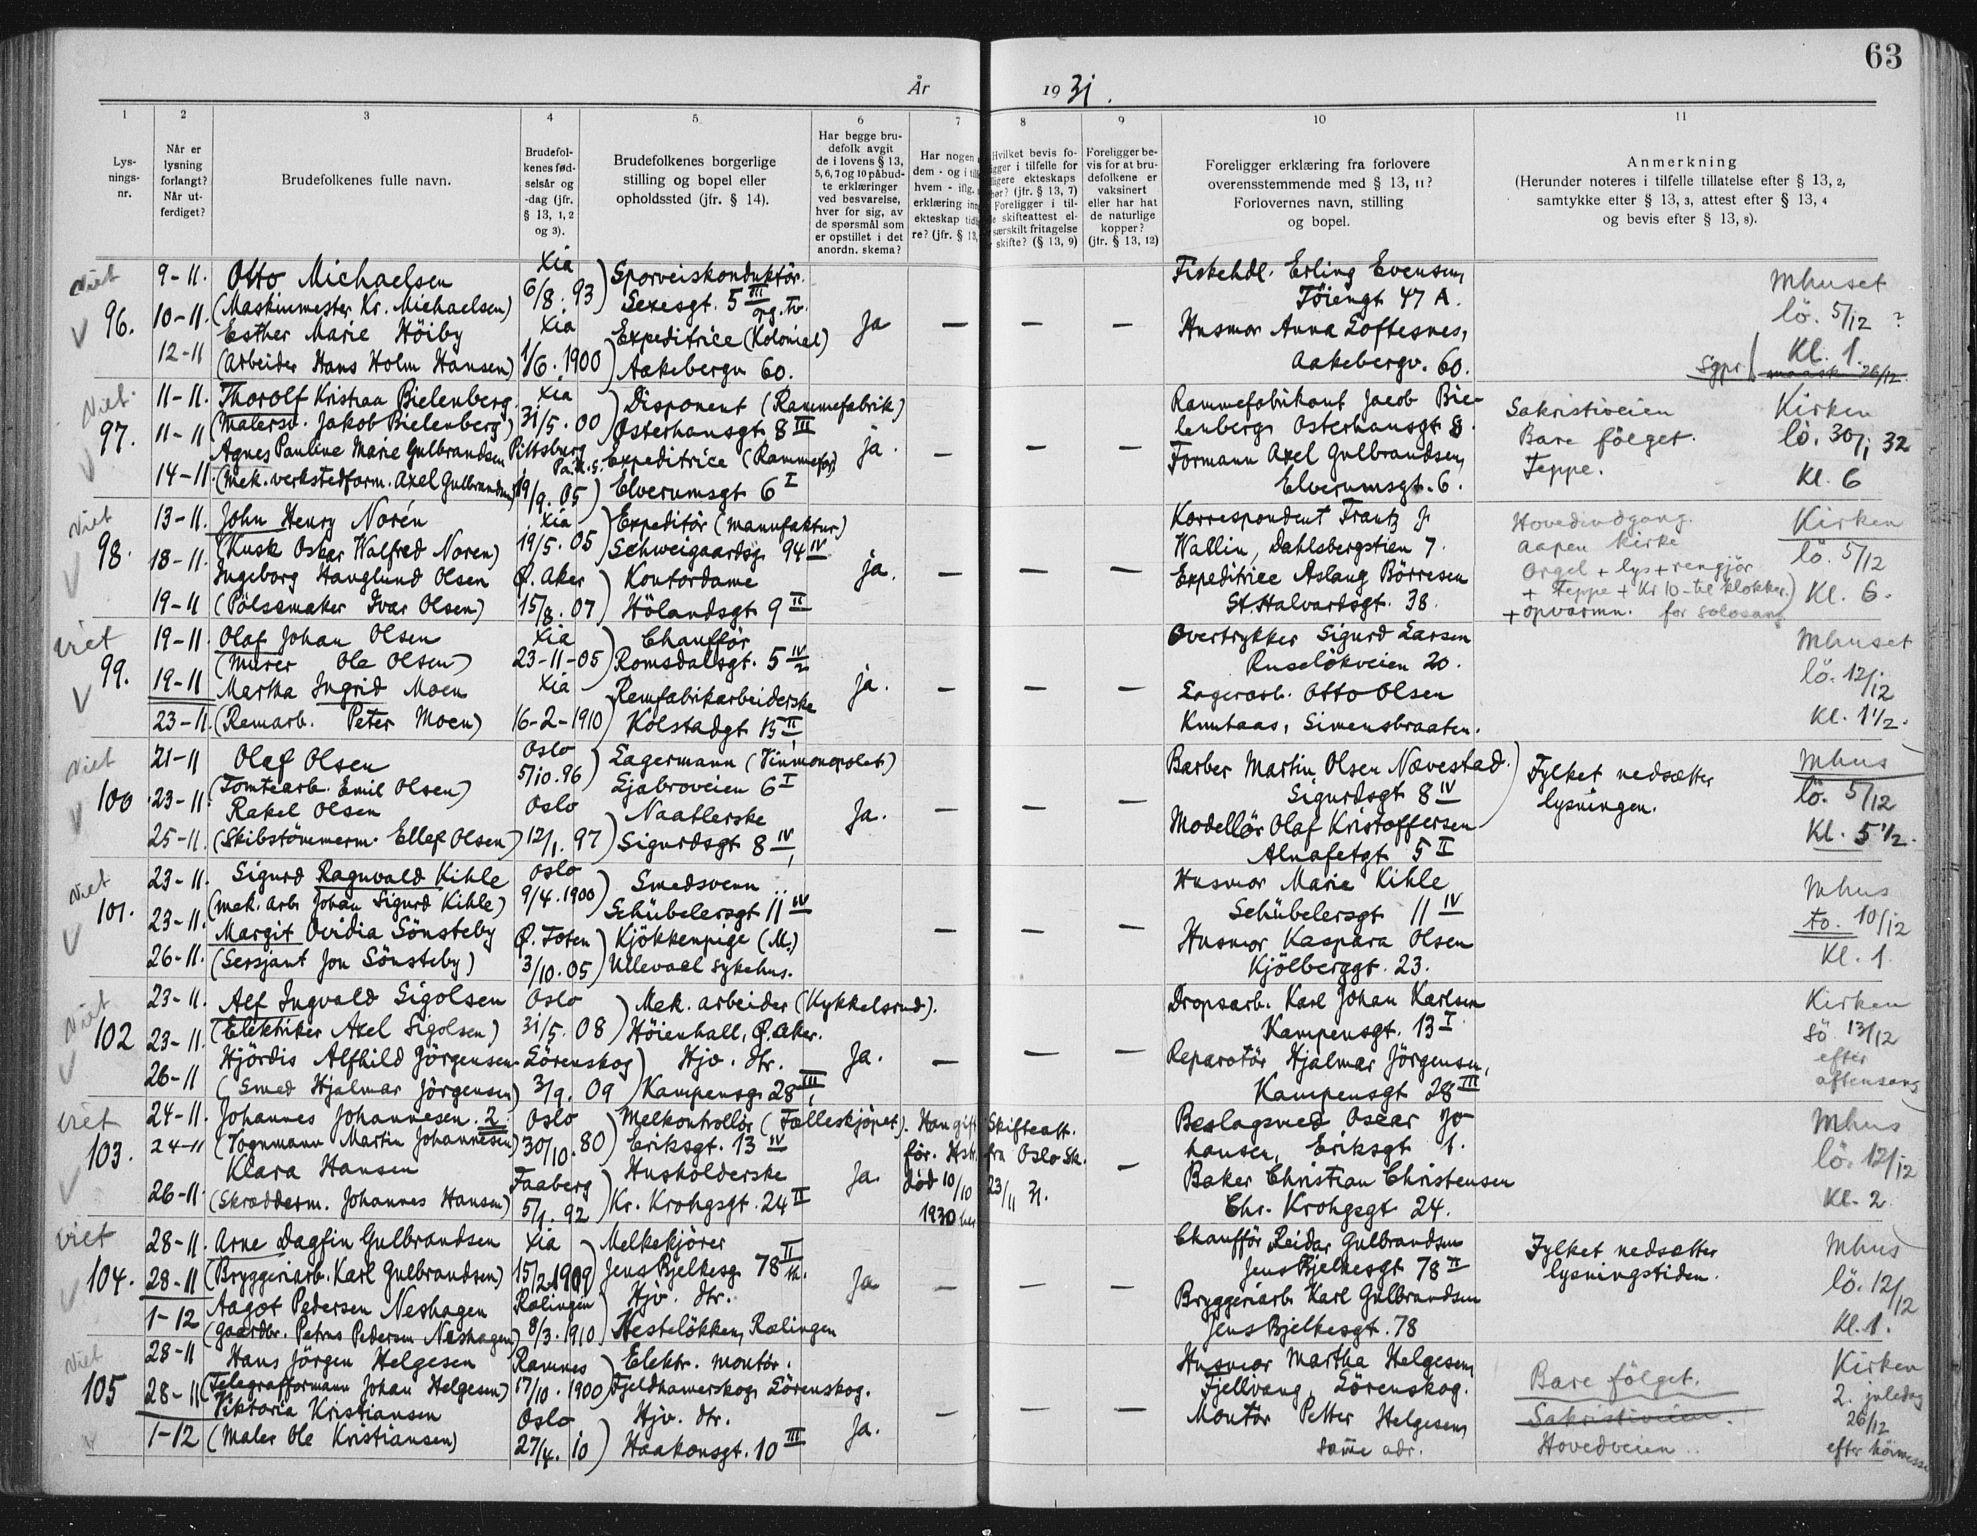 63
År 1931.
1 2 3 4 5 6 7 8 9 10 11
Lysningsnr.
Når er lysning forlangt? Når utferdiget?
Brudefolkenes fulle navn.
Brudefolkenes fødselsår og -dag (jfr. § 13, 1, 2 og 3).
Brudefolkenes borgerlige stilling og bopel eller opholdssted (jfr. § 14).
Har begge brudefolk avgit de i lovens § 13, 5, 6, 7 og 10 påbudte erklæringer ved besvarelse, hver for sig, av de spørsmål som er opstillet i det anordn. skema?
Har nogen
dem - og i til
hvem - iflg.
erklæring inn
ekteskap tid
re? (jfr. § 13,
Hvilket bevis fo-
gger i tilfelle for
ligere ekteskaps
hør? (jfr. § 13, 7)
Foreligger i til-
e skifteattest el-
særskilt fritagelse
skifte? (§ 13, 9)
Foreligger bevis for at brudefolkene er vaksinert eller har hat de naturlige kopper? (jfr. § 13, 12)
Foreligger erklæring fra forlovere overensstemmende med § 13, 11? Forlovernes navn, stilling og bopel.
Anmerkning
(Herunder noteres i tilfelle tillatelse efter § 13, 2, samtykke efter § 13, 3, attest efter § 13, 4 og bevis efter § 13, 8).
Viet
96.
9-11. Otto Michaelsen Xia Sporveiskonduktör. Fiskehdl. Erling Evensen, Mhuset
10-11. (Maskinmester Kr. Michaelsen) 6/8. 93 Sexesgt. 5 III Töiengt 47 A. lö. 5/12 ?
Esther Marie Höiby Xia Expeditrice (Kolonial) Ja — — — Husmor Anna Loftesnes, Kl. 1.
12-11 (Arbeider Hans Holm Hansen) 1/6. 1900 Aakebergv 60. Aakebergv. 60. 26/12.
Viet.
97.
11-11. Thorolf Kristian Bielenberg. Xia Disponent (Rammefabrik) Rammefabrikant Jacob Bie- Sakristiveien Kirken
11-11 (Malersv. Jakob Bielenberg) 31/5. 00 Osterhausgt 8 III lenberg Osterhausgt 8. Bare fölget. lö. 30/1 32
Agnes Pauline Marie Gulbrandsen Pittsberg Expeditrice (Rammefor.) ja. — — — Formann Axel Gulbrandsen, Teppe. Kl. 6
14-11. (Mek. verkstedform. Axel Gulbrandsen) 19/9. 05 Elverumsgt 6 I Elverumsgt. 6.
Viet
98.
13-11. John Henry Norén Xia Expeditör (Manufaktur) Korrespondent Frantz Hovedindgang. Kirken
18-11. (Kusk Oskar Walfred Noren) 19/5. 05 Schweigaardsg. 94 IV Wallin, Dahlsbergstien 7. Aapen kirke lö. 5/12
Ingeborg Hauglund Olsen Ø. Aker Kontordame ja. — — — Expeditrice Aslaug Börresen Orgel + lys + rengjör Kl. 6.
19-11 (Pölsemaker Ivar Olsen) 15/8. 07 Hölandsgt 9 II St. Halvardsgt. 38. + Teppe + Kr 10 - til klokker.)
+ opvarmn. for solosang
Viet
99.
19-11. Olaf Johan Olsen Xia Chaufför Overtrykker Sigurd Larsen Mhuset
(Murer Ole Olsen) 23-11-05 Romsdalsgt. 5 IV/2 Ruselökveien 20. lö. 12/12
19-11 Martha Ingrid Moen Xia Remfabrikarbeiderske ja. — — — Lagerarb. Otto Olsen Kl. 1½.
23-11. (Remarb. Peter Moen) 16-2-1910 Kolstadgt 15 II Knutaas, Simensbraaten.
Viet
100.
21-11 Olaf Olsen Oslo Lagermann (Vinmonopolet) Barber Martin Olsen Nævestad. Fylket nedsætter Mhus
23-11. (Tomtearb. Emil Olsen) 5/10. 96 Ljabroveien 6 I Sigurdsgt 8 IV lysningen. lö. 5/12
Rakel Olsen Oslo Naatlerske Ja. — — — Modellör Olaf Kristoffersen Kl. 5½.
25-11. (Skibstömmerm. Ellef Olsen) 12/1. 97 Sigurdsgt 8 IV Alnafetgt 5 I
Viet
101.
23-11. Sigurd Ragnvald Kihle Oslo Smedsvenn Husmor Marie Kihle Mhus
23-11. (Mek. arb. Johan Sigurd Kihle) 9/4. 1900 Schübelersgt 11 IV Schübelersgt 11 IV to. 10/12
Margit Ovidia Sönsteby Ø. Toten Kjökkenpige (M.) — — — Husmor Kaspara Olsen Kl. 1
26-11. (Sersjant Jon Sönsteby) 3/10. 05 Ullevaal Sykehus. Kjölberggt. 23.
Viet
102
23-11. Alf Ingvald Sigolsen Oslo Mek. arbeider (Kykkelsrud). Dropsarb. Karl Johan Karlsen Kirken
23-11. (Elektriker Axel Sigolsen) 31/5. 08 Höienhall, Ø. Aker. Kampensgt. 13 I. Sö 13/12
Hjördis Alfhild Jörgensen Sörenskog Hjv. dtr. Ja. — — — Reparatör Hjalmar Jörgensen, efter
26-11 (Smed Hjalmar Jörgensen) 3/9. 09 Kampensgt 28 III, Kampensgt 28 III aftensang
Viet
103.
24-11. Johannes Johannesen. 2. Oslo Melkontrollör (Fælleskjöpet). Han gift Skifteatt. Beslagsmed Oscar Jo- Mhus
24-11 (Vognmann Martin Johannesen) 30/10. 80 Eriksgt. 13 IV för. Hstr. fra Oslo Sk. hansen, Eriksgt 1. lö. 12/12
Klara Hansen Faaberg Husholderske Ja. död 10/10 23/11 31. — Baker Christian Christensen Kl. 2
26-11. (Skrædderm. Johannes Hansen) 5/1. 92 Kr. Krohgsgt. 24 II 1930 her Chr. Krohgsgt 24.
Viet
104.
28-11. Arne Dagfin Gulbrandsen Xia Melkekjörer Chauffför Reidar Gulbrandsen Fylket nedsætter Mhus
28-11 (Bryggeriarb. Karl Gulbrandsen) 15/2-1909 Jens Bjelkesg 78 II Jens Bjelkesgt 78 II lysningstiden. lö. 12/12
Aagot Pedersen Neshagen Rælingen Hjv. dtr. Ja — — — Bryggeriarb Karl Gulbrandsen Kl. 1.
1-12 (Gaardbr. Petrus Pedersen Neshagen) 8/3. 1910 Hestelökken, Rælingen Jens Bjelkesgt. 78
Viet
105
28-11 Hans Jörgen Helgesen Ramnes Elektr. montör. Husmor Martha Helgesen, Bare fölget. Kirken
28-11 (Telegrafformann Johan Helgesen) 17/10. 1900 Fjeldhamerskog, Lörenskog. Fjellvang, Lörenskog. Sakristiveien. 2. juledag
Viktoria Kristiansen Oslo Hjv. dtr. Ja. — — — Montör Petter Helgesen, Hovedveien 26/12
1-12 (Maler Ole Kristiansen) 27/4. 10 Haakonsgt. 10 III samme adr. efter höimesse